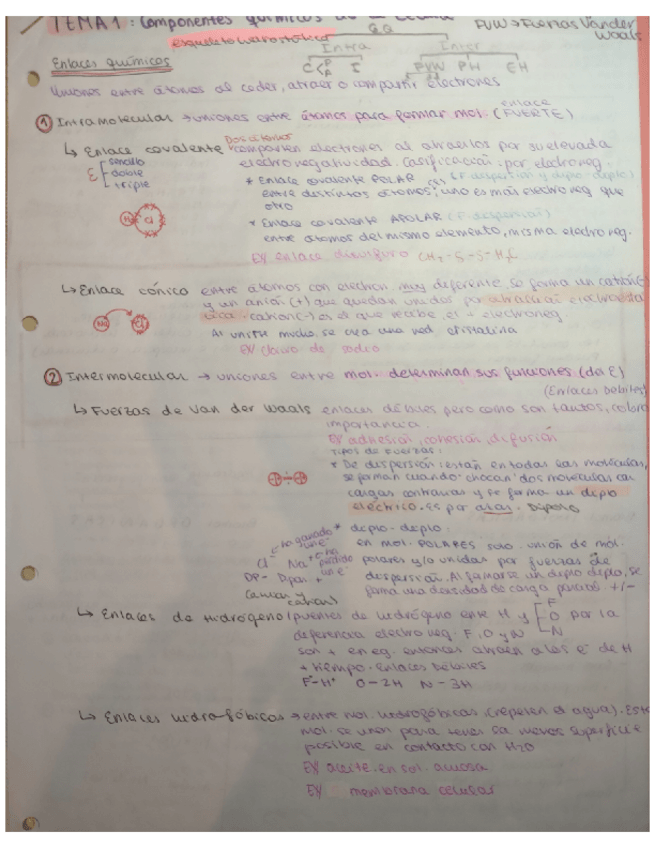 TEMA 1: Componentes químicos de la célula
FVW → Fuerzas Van der Waals
Intra Inter
FVW PH EH
Enlaces químicos
Uniones entre átomos al ceder, atraer o compartir electrones
① Intramolecular → uniones entre átomos para formar mol. (enlace FUERTE)
↳ Enlace covalente Dos átomos comparten electrones al atraerlos por su elevada
electronegatividad. Casificación: por electroneg.
E sencillo
doble
triple
* Enlace covalente POLAR
entre distintos átomos, uno es más electroneg que
otro
Cl
* Enlace covalente APOLAR (F. dispersión)
entre átomos del mismo elemento, misma electroneg.
EX enlace disulfuro
↳ Enlace iónico entre átomos con electron. muy diferente, se forma un catión(-)
y un anión (+) que quedan unidos por atracción electrostática
catión(-) es el que recibe, el + electroneg
Al unirse mucho, se crea una red cristalina
EX cloruro de sodio
② Intermolecular → uniones entre mol. determinan sus funciones (da E)
(Enlaces Débiles)
↳ Fuerzas de Van der Waals enlaces débiles pero como son tantos, cobra
importancia.
EX adhesión, cohesión, difusión
Tipos de Fuerzas:
* De dispersión: están en todas las moléculas,
se forman cuando chocan dos moléculas con
cargas contrarias y se forma un dipolo
eléctrico. es por azar.
* dipolo-dipolo.
en mol. POLARES solo. unión de mol.
polares y/o unidas por fuerzas de
dispersión. Al formarse un dipolo dipolo, se
forma una densidad de carga parcial +/-
Cl⁻ ha ganado un e⁻
Na⁺ ha perdido un e⁻
↳ Enlaces de Hidrógeno (puentes de hidrógeno entre H y F O N por la
diferencia electroneg. F, O y N
son + eneg. entonces atraen a los e⁻ de H
+ tiempo. Enlaces Débiles
F-H O-2H N-3H
↳ Enlaces hidrofóbicos → entre mol. hidrofóbicas (repelen el agua). Esta
mol. se unen para tener la menor superficie
posible en contacto con H2O
EX aceite en sol. acuosa
EX membrana celular